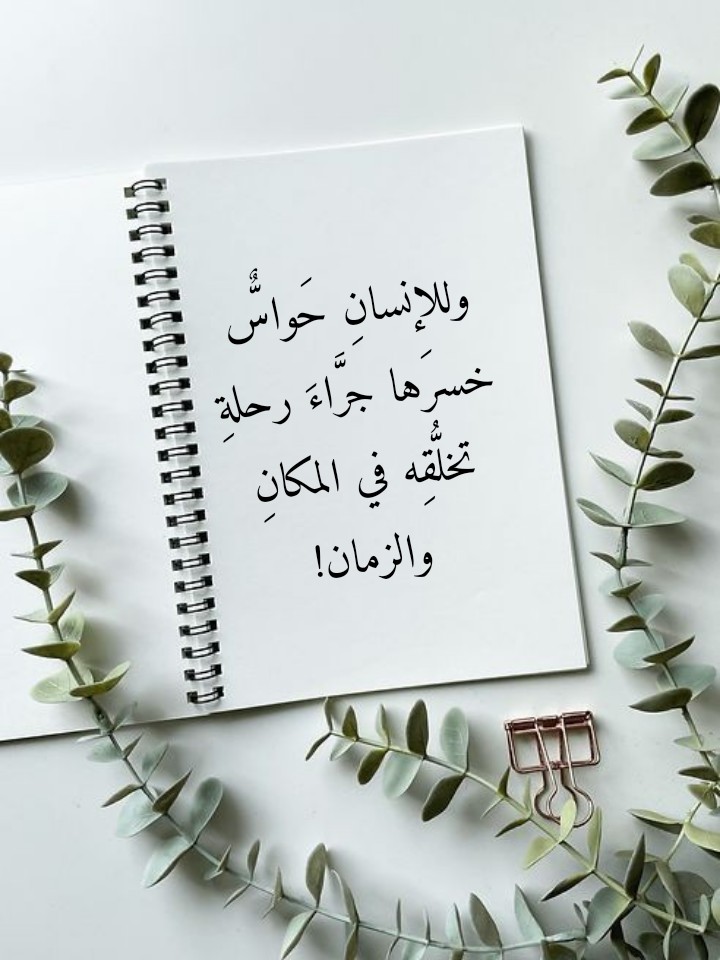 وللإنسانِ حَواسٌّ
خسرَها جرَّاءَ رحلةِ
تخلُّقِه في المكانِ
والزمان!